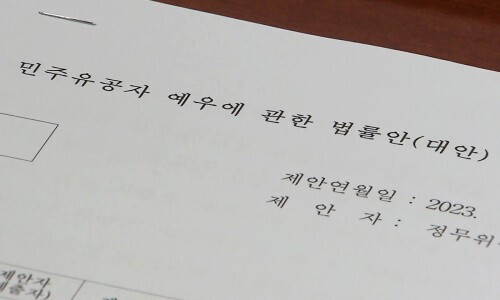 민주유공자 예우에 관한 법률안(대안)
제안연월일 : 2023.
제 안 자 : 정무위
제안자